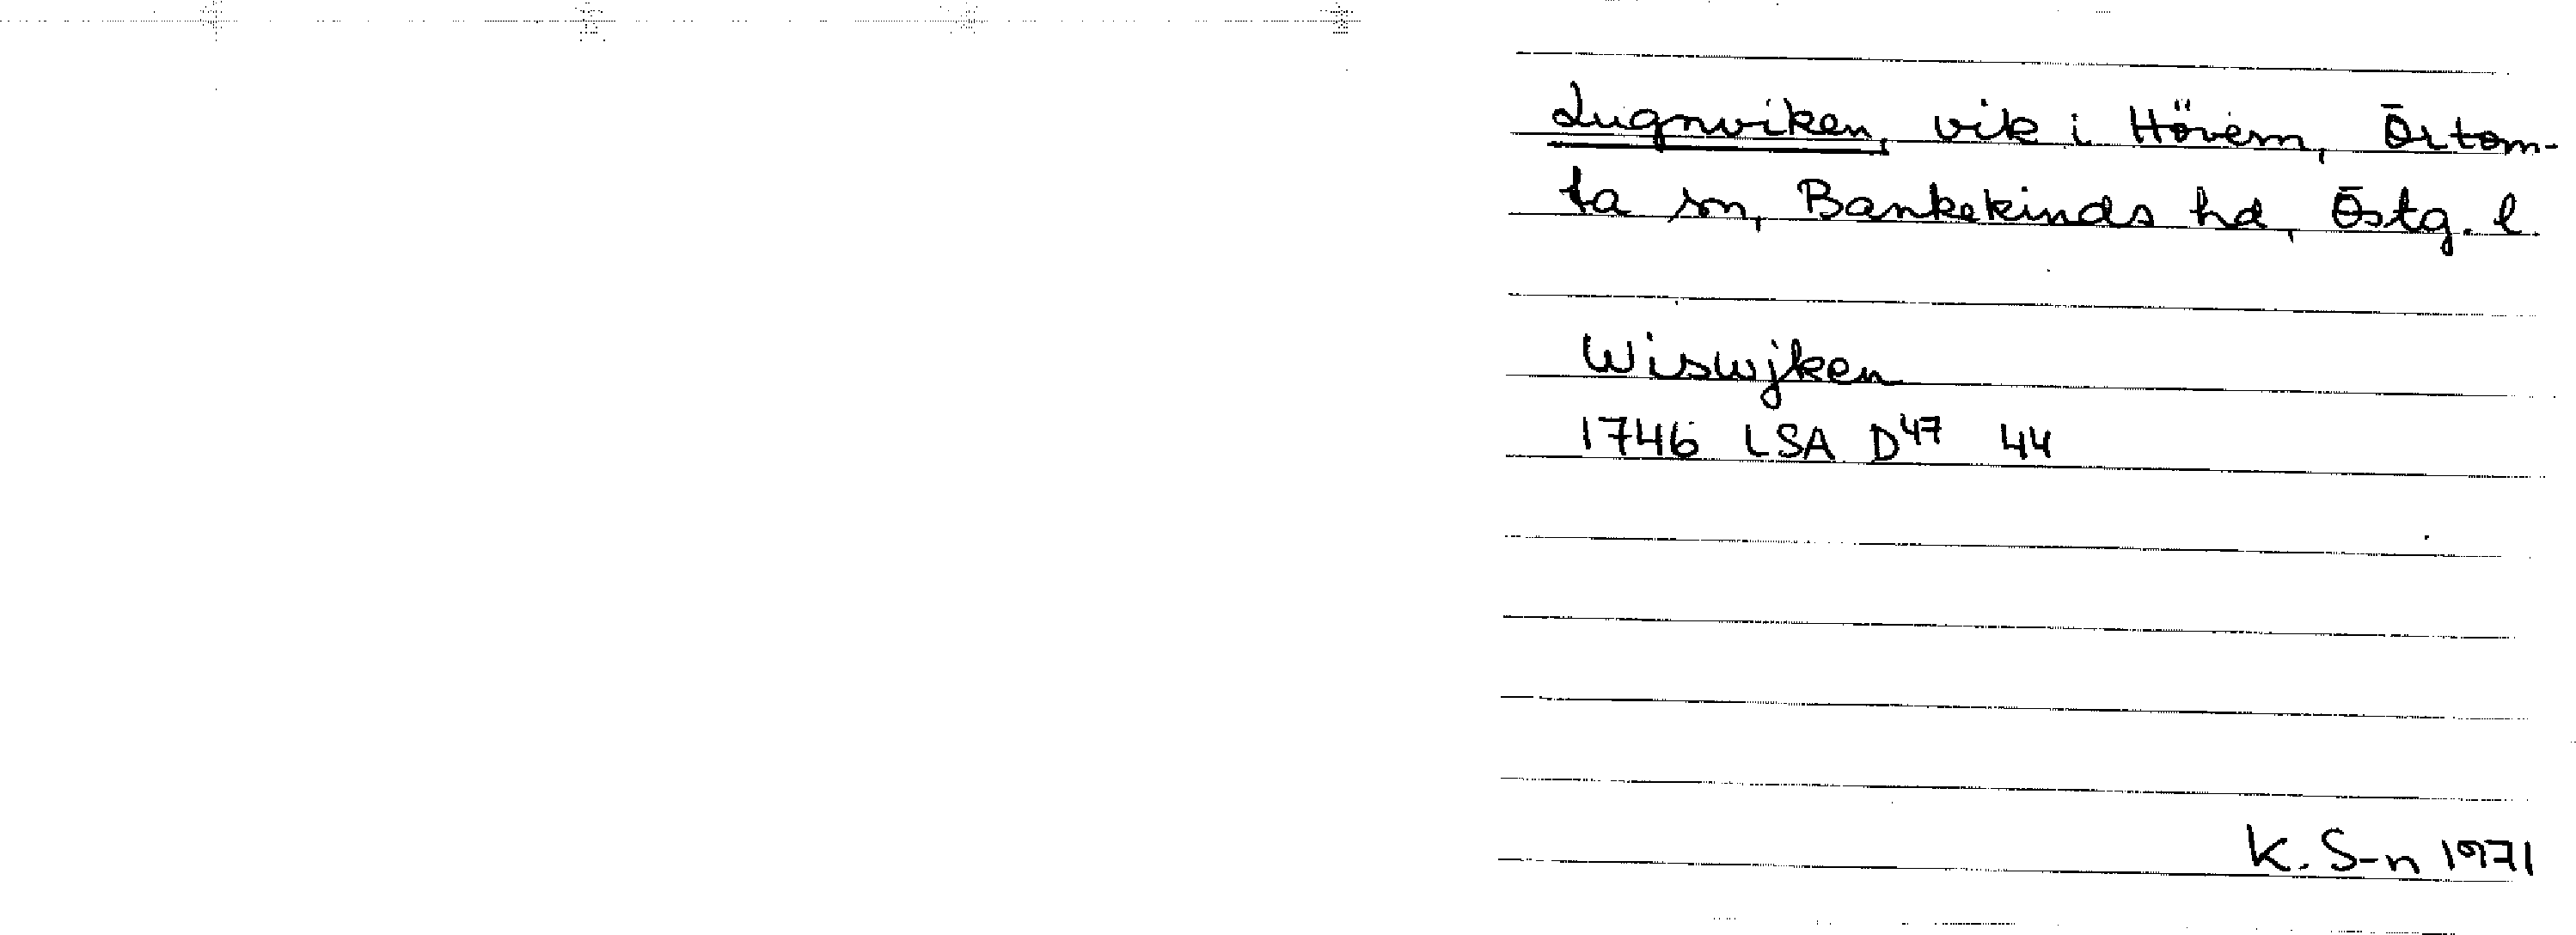 Lugnviken, vik i Hövern, Örtom-
ta sn, Bankekinds hd, Östg. l.
Wiswijken
1746 LSA D⁴⁷ 44
K. S-n 1971